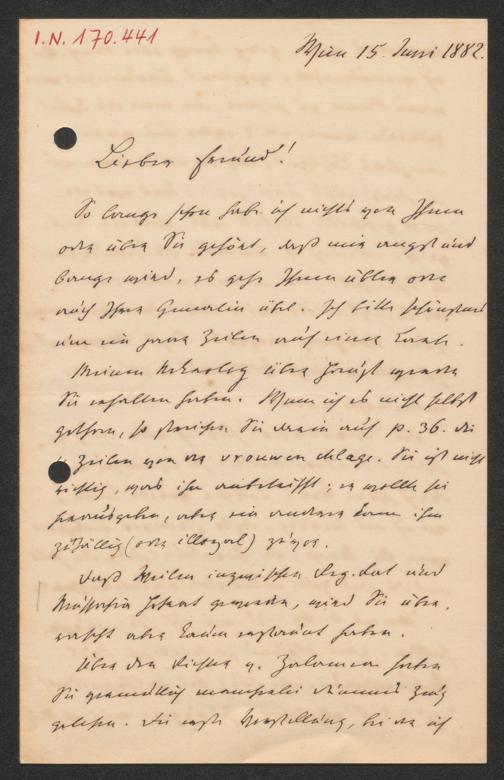 I.N. 170.441
Wien 15. Juni 1882.
Lieber Freund!
So lange schon habe ich nichts von Ihnen
oder über Sie gehört, daß mir angst und
bange wird, es gehe Ihnen übel oder
auch Ihrer Gemalin übel. Ich bitte schönstens
um ein paar Zeilen auf einer Karte.
Meinen Nekrolog über Haupt werden
Sie erhalten haben. Wenn ich es nicht selbst
gethan, so streichen Sie darin auf p. 36. die
Zeilen von der vrouwen chlage. Sie ist nicht
wichtig, was ihn anbetrifft; er wollte sie
herausgeben, aber ein anderer kam ihm
zufällig (oder illoyal) zuvor.
Daß Weilen inzwischen Reg. Rat und
geworden, wird Sie über-
rascht aber kaum erfreut haben.
Über den Richter v. Zalamea haben
Sie gewiß mancherlei dummes Zeug
gelesen. Die erste Vorstellung, bei der ich